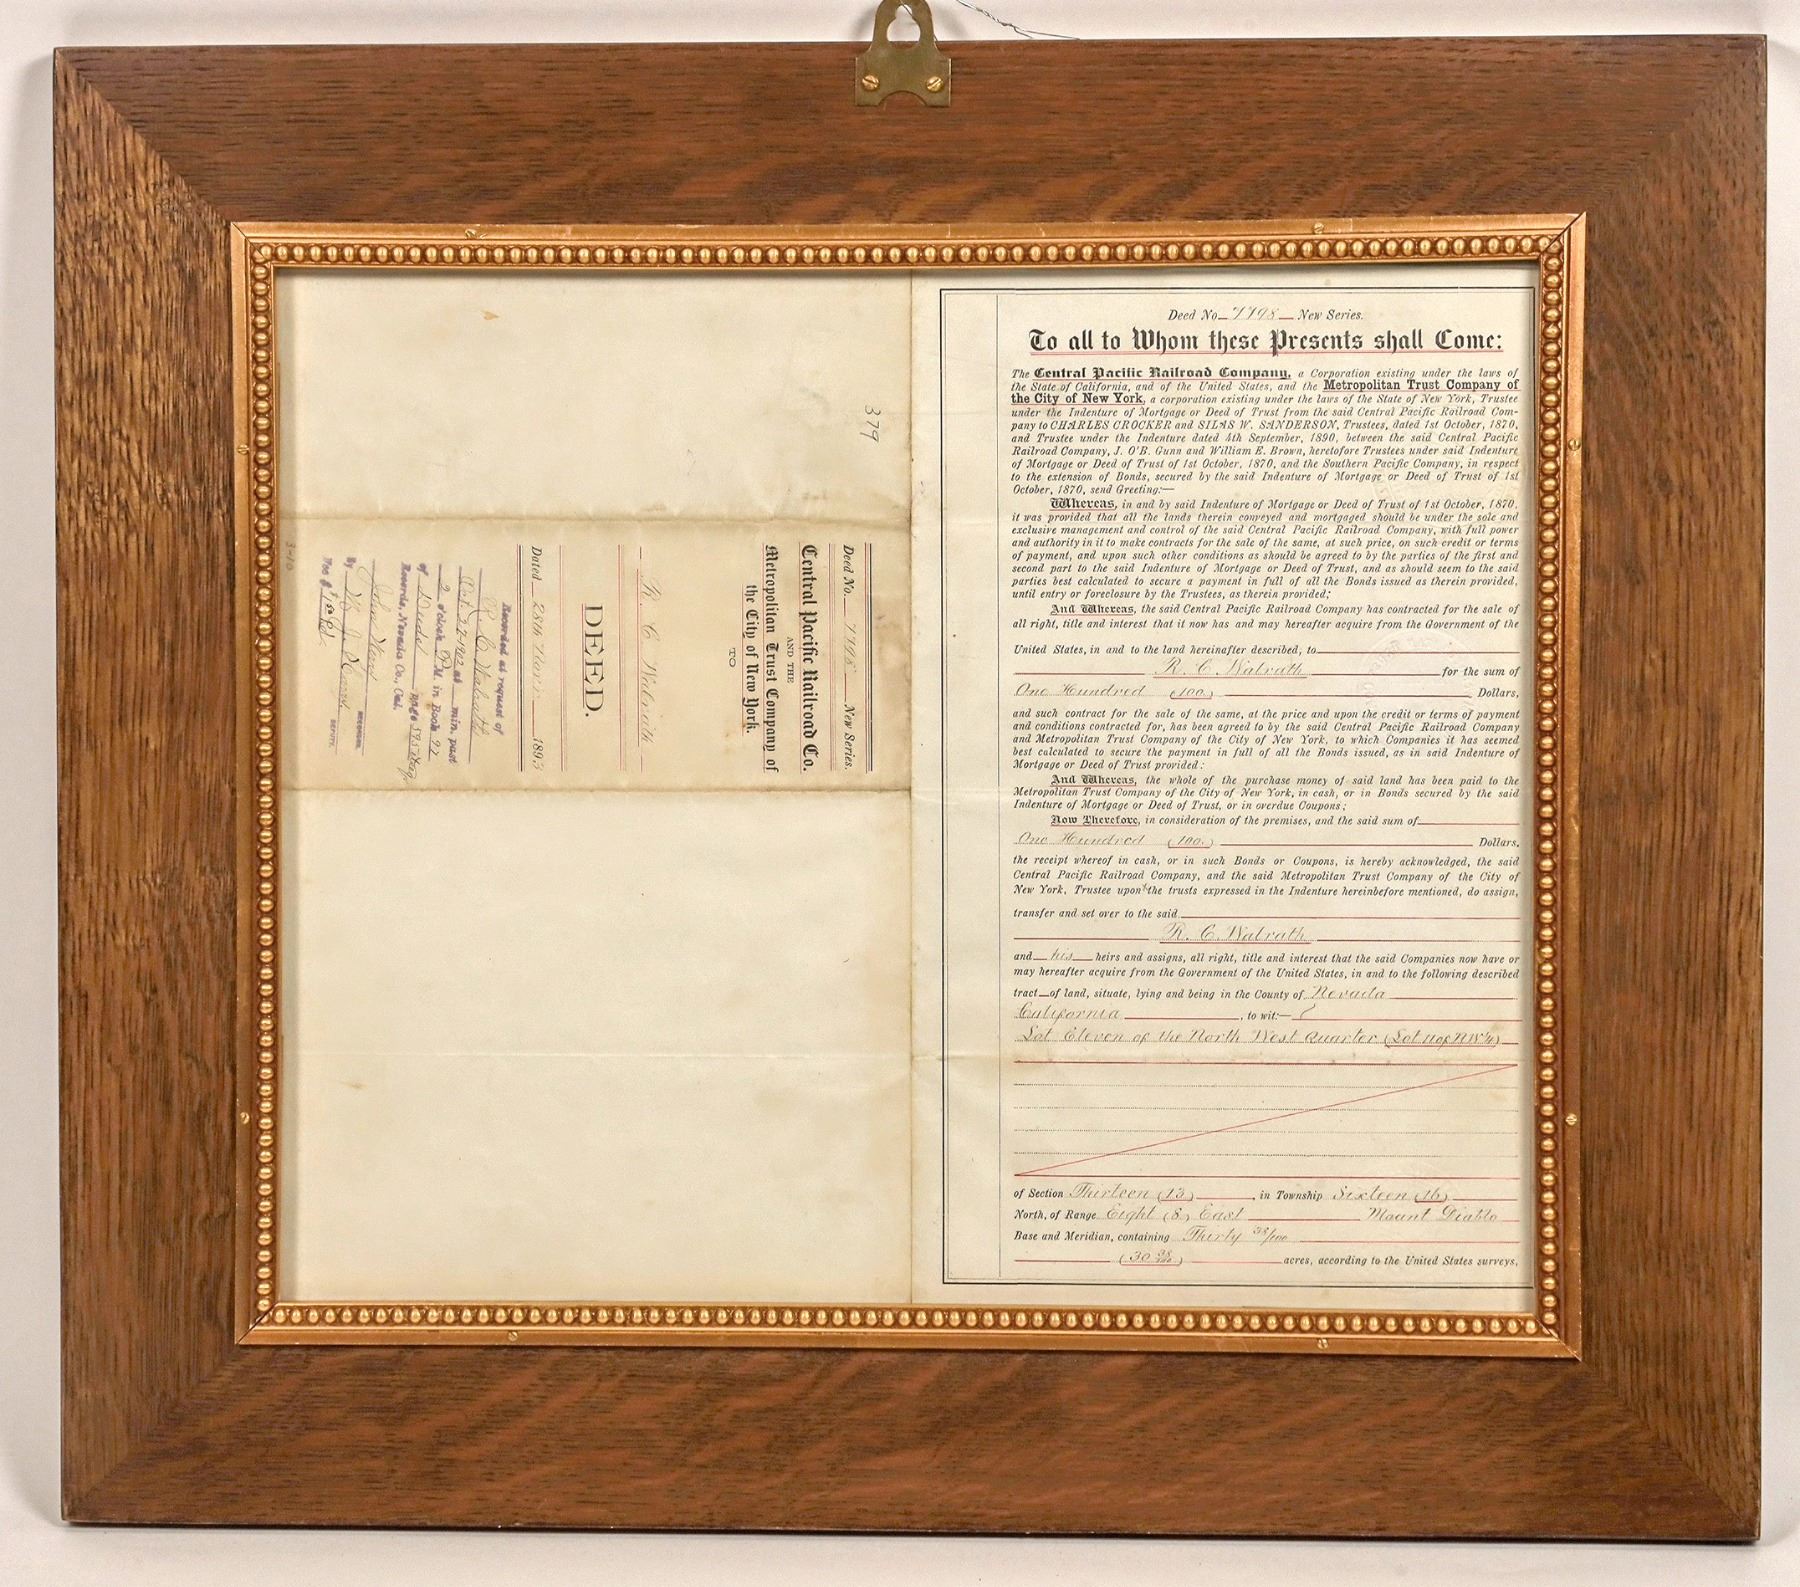 379
Deed No. 7798 New Series.
Central Pacific Railroad Co.
AND THE
Metropolitan Trust Company of
the City of New York.
TO
R. C. Walrath
DEED.
Dated 28th Novr. 1893
Recorded at request of
R. C. Walrath
Oct 27 1902 at min. past
2 o'clock P. M. in Book 97
of Deeds page 575
Records, Nevada Co., Cal.
RECORDER.
By
DEPUTY.
Fee $
Deed No 7798 New Series.
To all to Whom these Presents shall Come:
The Central Pacific Railroad Company, a Corporation existing under the laws of
the State of California, and of the United States, and the Metropolitan Trust Company of
the City of New York, a corporation existing under the laws of the State of New York, Trustee
under the Indenture of Mortgage or Deed of Trust from the said Central Pacific Railroad Com-
pany to CHARLES CROCKER and SILAS W. SANDERSON, Trustees, dated 1st October, 1870,
and Trustee under the Indenture dated 4th September, 1890, between the said Central Pacific
Railroad Company, J. O'B. Gunn and William E. Brown, heretofore Trustees under said Indenture
of Mortgage or Deed of Trust of 1st October, 1870, and the Southern Pacific Company, in respect
to the extension of Bonds, secured by the said Indenture of Mortgage or Deed of Trust of 1st
October, 1870, send Greeting:—
Whereas, in and by said Indenture of Mortgage or Deed of Trust of 1st October, 1870,
it was provided that all the lands therein conveyed and mortgaged should be under the sole and
exclusive management and control of the said Central Pacific Railroad Company, with full power
and authority in it to make contracts for the sale of the same, at such price, on such credit or terms
of payment, and upon such other conditions as should be agreed to by the parties of the first and
second part to the said Indenture of Mortgage or Deed of Trust, and as should seem to the said
parties best calculated to secure a payment in full of all the Bonds issued as therein provided,
until entry or foreclosure by the Trustees, as therein provided;
And Whereas, the said Central Pacific Railroad Company has contracted for the sale of
all right, title and interest that it now has and may hereafter acquire from the Government of the
United States, in and to the land hereinafter described, to
R. C. Walrath for the sum of
One Hundred (100) Dollars,
and such contract for the sale of the same, at the price and upon the credit or terms of payment
and conditions contracted for, has been agreed to by the said Central Pacific Railroad Company
and Metropolitan Trust Company of the City of New York, to which Companies it has seemed
best calculated to secure the payment in full of all the Bonds issued, as in said Indenture of
Mortgage or Deed of Trust provided:
And Whereas, the whole of the purchase money of said land has been paid to the
Metropolitan Trust Company of the City of New York, in cash, or in Bonds secured by the said
Indenture of Mortgage or Deed of Trust, or in overdue Coupons;
Now Therefore, in consideration of the premises, and the said sum of
One Hundred (100) Dollars,
the receipt whereof in cash, or in such Bonds or Coupons, is hereby acknowledged, the said
Central Pacific Railroad Company, and the said Metropolitan Trust Company of the City of
New York, Trustee upon the trusts expressed in the Indenture hereinbefore mentioned, do assign,
transfer and set over to the said
R. C. Walrath
and his heirs and assigns, all right, title and interest that the said Companies now have or
may hereafter acquire from the Government of the United States, in and to the following described
tract of land, situate, lying and being in the County of Nevada
California, to wit:—
Lot Eleven of the North West Quarter (Lot 11 of N.W.¼)
of Section Thirteen (13), in Township Sixteen (16)
North, of Range Eight (8) East Mount Diablo
Base and Meridian, containing Thirty 38/100
(30 38/100) acres, according to the United States surveys,